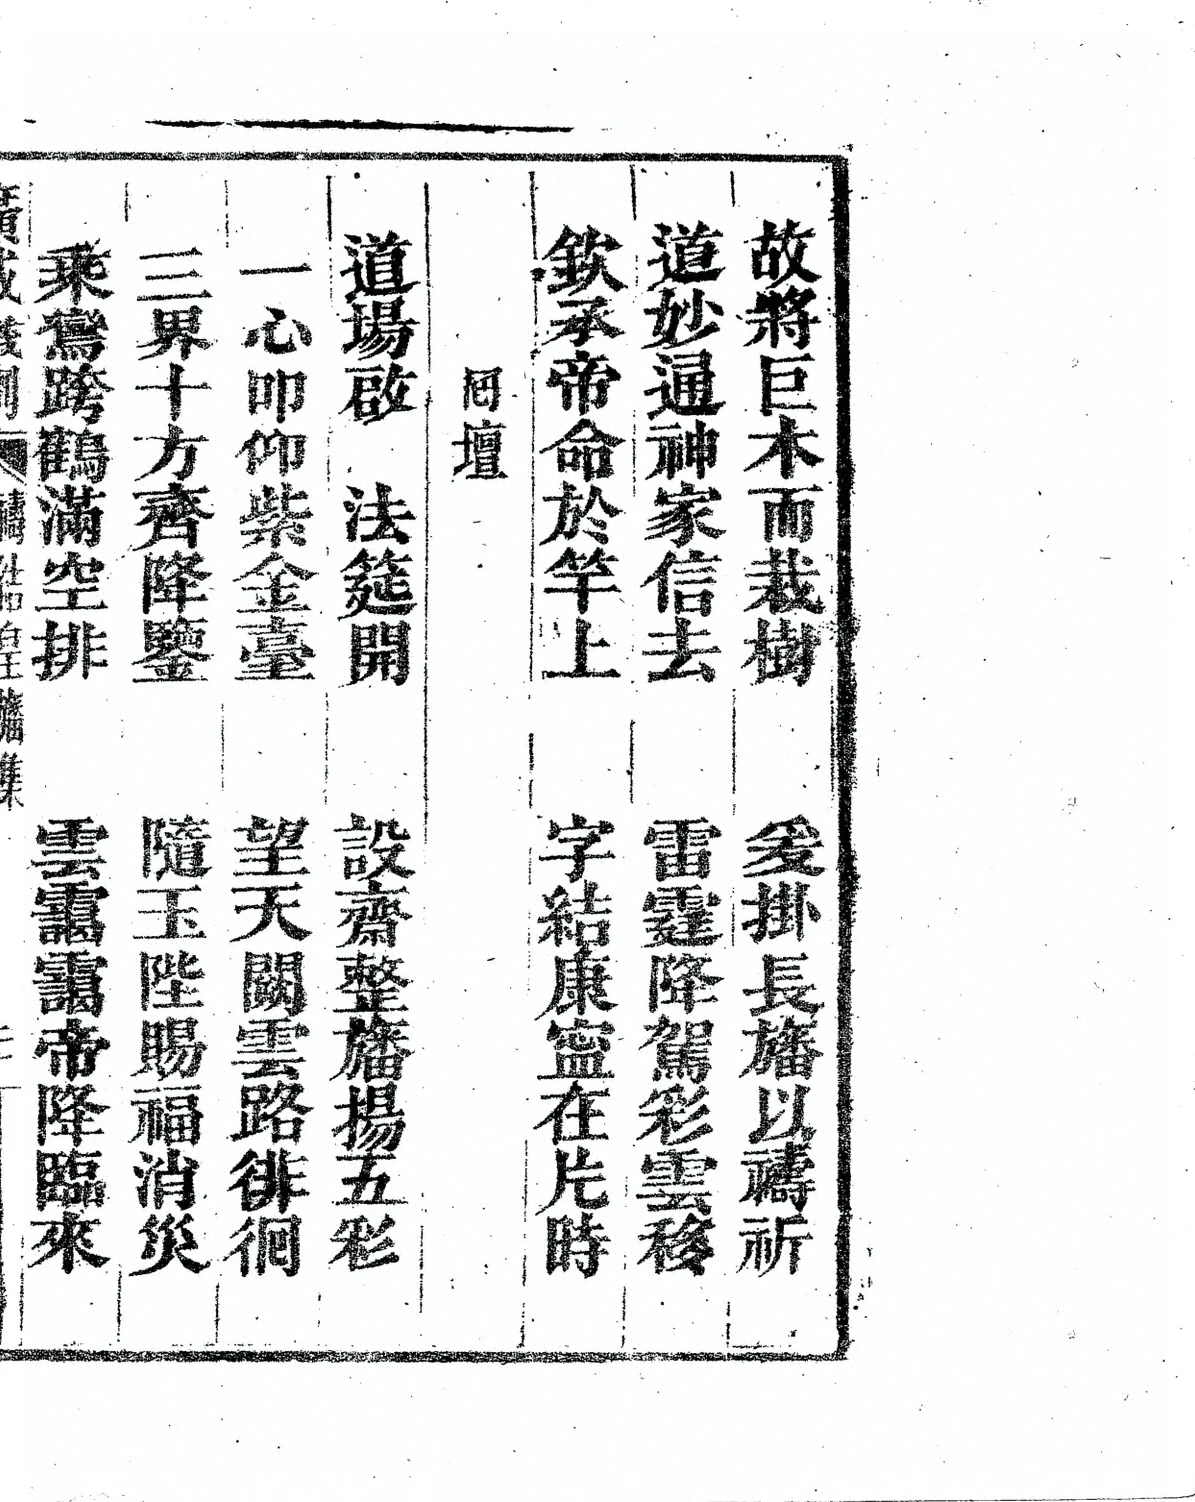 故將巨木而栽樹　爰掛長旛以禱祈
道妙通神家信去　雷霆降駕彩雲移
欽承帝命於竿上　字結康寍在片時
囘壇
道場啟　法筵開　設齋整旛揚五彩
一心叩仰紫金臺　望天闕雲路徘徊
三界十方齊降鑒　隨玉陛賜福消災
乘鸞跨鶴滿空排　雲靄靄帝降臨來
廣成儀制